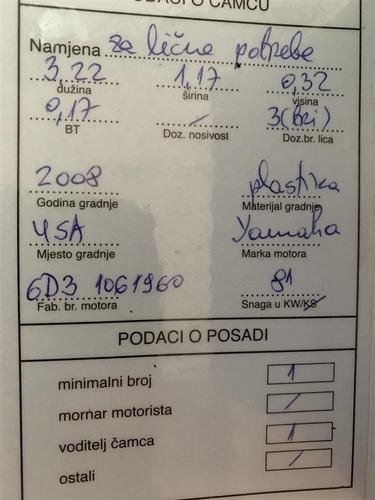 PODACI O ČAMCU
Namjena za lične potrebe
3,22 1,17 0,32
dužina širina visina
0,17 / 3(tri)
BT Doz. nosivost Doz.br. lica
2008 plastika
Godina gradnje Materijal gradnje
USA Yamaha
Mjesto gradnje Marka motora
6D3 1061960 81
Fab. br. motora Snaga u KW/KS
PODACI O POSADI
minimalni broj 1
mornar motorista /
voditelj čamca 1
ostali /